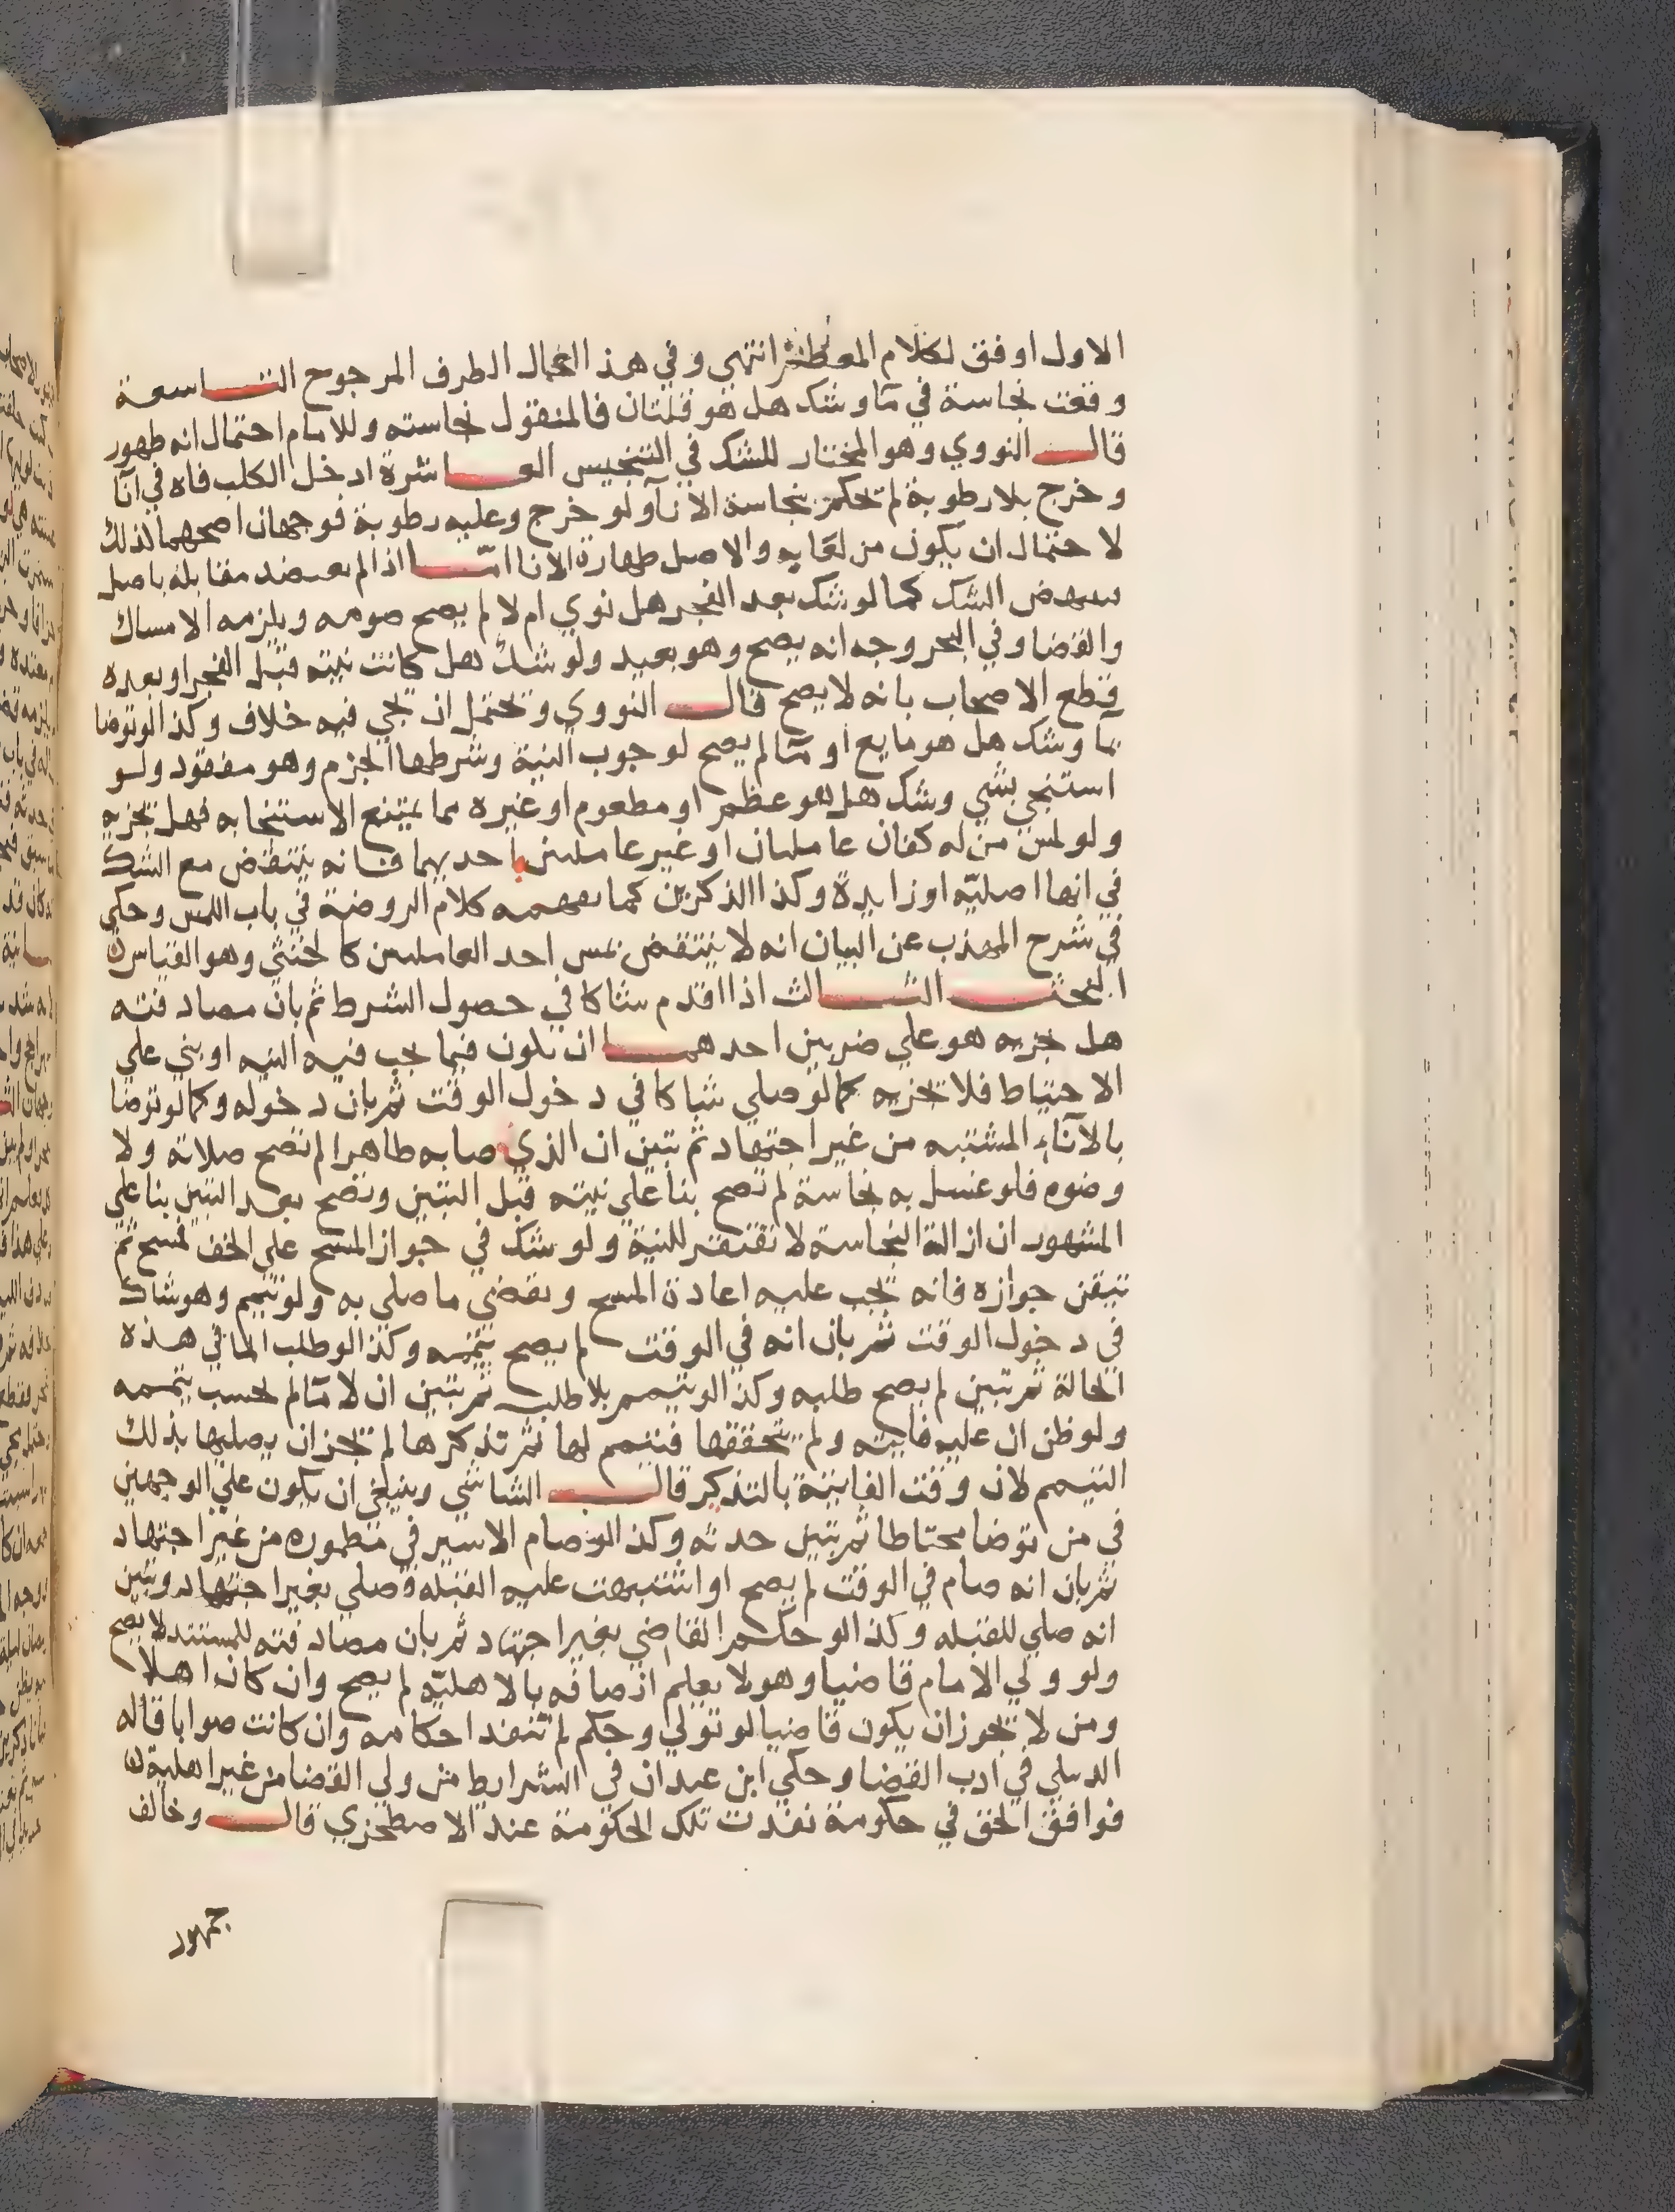 الاول اوفق لكلام المعظم انتهى وفي هذا اعمال الطرف المرجوح التاسعة
وقعت نجاسة في مآ وشك هل هو قلتان فالمنقول نجاسته وللامام احتمال انه طهور
قال النووي وهو المختار للشك في التنجيس العاشرة ادخل الكلب فاه في انآ
وخرج بلا رطوبة لم نحكم بنجاسة الانآ ولو خرج وعليه رطوبة فوجهان اصحهما كذلك
لاحتمال ان يكون من لعابه والاصل طهارة الانا امّا اذا لم يعتضد مقابله باصل
سهض الشك كما لو شك بعد الفجر هل نوي ام لا لم يصح صومه ويلزمه الامساك
والقضا وفي البحر وجه انه يصح وهو بعيد ولو شك هل كانت نيته قبل الفجر او بعده
قطع الاصحاب بانه لا يصح قال النووي ويحتمل ان يجي فيه خلاف وكذا لو توضا
بمآ وشك هل هو مايع او مآ لم يصح لوجوب النية وشرطها الجزم وهو مفقود ولو
استنجي بشي وشك هل هو عظم او مطعوم او غيره مما يمتنع الاستنجا به فهل يجزيه
ولو لمس من له كفان عاملتان او غير عاملتين باحديهما فانه ينتقض مع الشك
في انها اصليّه او زايدة وكذا الذكرين كما يفهمه كلام الروضة في باب اللمس وحكي
في شرح المهذب عن البيان انه لا ينتقض بمس احد العاملين كالخنثي وهو القياس
البحث الثالث اذا اقدم شاكا في حصول الشرط ثم بان مصادفته
هل يجزيه هو علي ضربين احدهما ان تكون فيما يجب فيه النيه او بني علي
الاحتياط فلا يجزيه كما لو صلي شاكا في دخول الوقت ثم بان دخوله وكما لو توضا
بالانآء المشتبه من غير اجتهاد ثم تبين ان الذي اصابه طاهرا لم تصح صلاته ولا
وضوه فلو غسل به نجاسة لم تصح بنا علي نيته قبل التبين وتصح بعد التبين بنا علي
المشهور ان ازالة النجاسه لا تفتقر للنية ولو شك في جواز المسح علي الخف فمسح ثم
تيقن جوازه فانه يجب عليه اعادة المسح ويقضي ما صلي به ولو تيمم وهو شاك
في دخول الوقت ثم بان انه في الوقت لم يصح تيممه وكذا لو طلب الما في هذه
الحالة ثم تبين لم يصح طلبه وكذا لو تيمم بلا طلب ثم تبين ان لا مآ لم يحسب تيممه
ولو ظن ان عليه فايته ولم يتحققها فتيمم لها ثم تذكرها لم تجز ان يصليها بذلك
التيمم لان وقت الفايتة بالتذكر قال الشاشي وينبغي ان يكون علي الوجهين
في من توضا محتاطا ثم تبين حدثه وكذا لو صام الاسير في مطموره من غير اجتهاد
ثم بان انه صام في الوقت لم يصح او اشتبهت عليه القبله فصلي بغير اجتهاد وتبين
انه صلي للقبله وكذا لو حكم القاضي بغير اجتهاد ثم بان مصادفته للمستند لا يصح
ولو ولي الامام قاضيا وهو لا يعلم اتصافه بالاهليّه لم يصح وان كان اهلا
ومن لا يجوز ان يكون قاضيا لو تولي وحكم لم تنفذ احكامه وان كانت صوابا قاله
الدبيلي في ادب القضا وحكي ابن عبدان في الشرايط من ولي القضا من غير اهلية
فوافق الحق في حكومة نفذت تلك الحكومة عند الاصطخري قال وخالف
جمهور